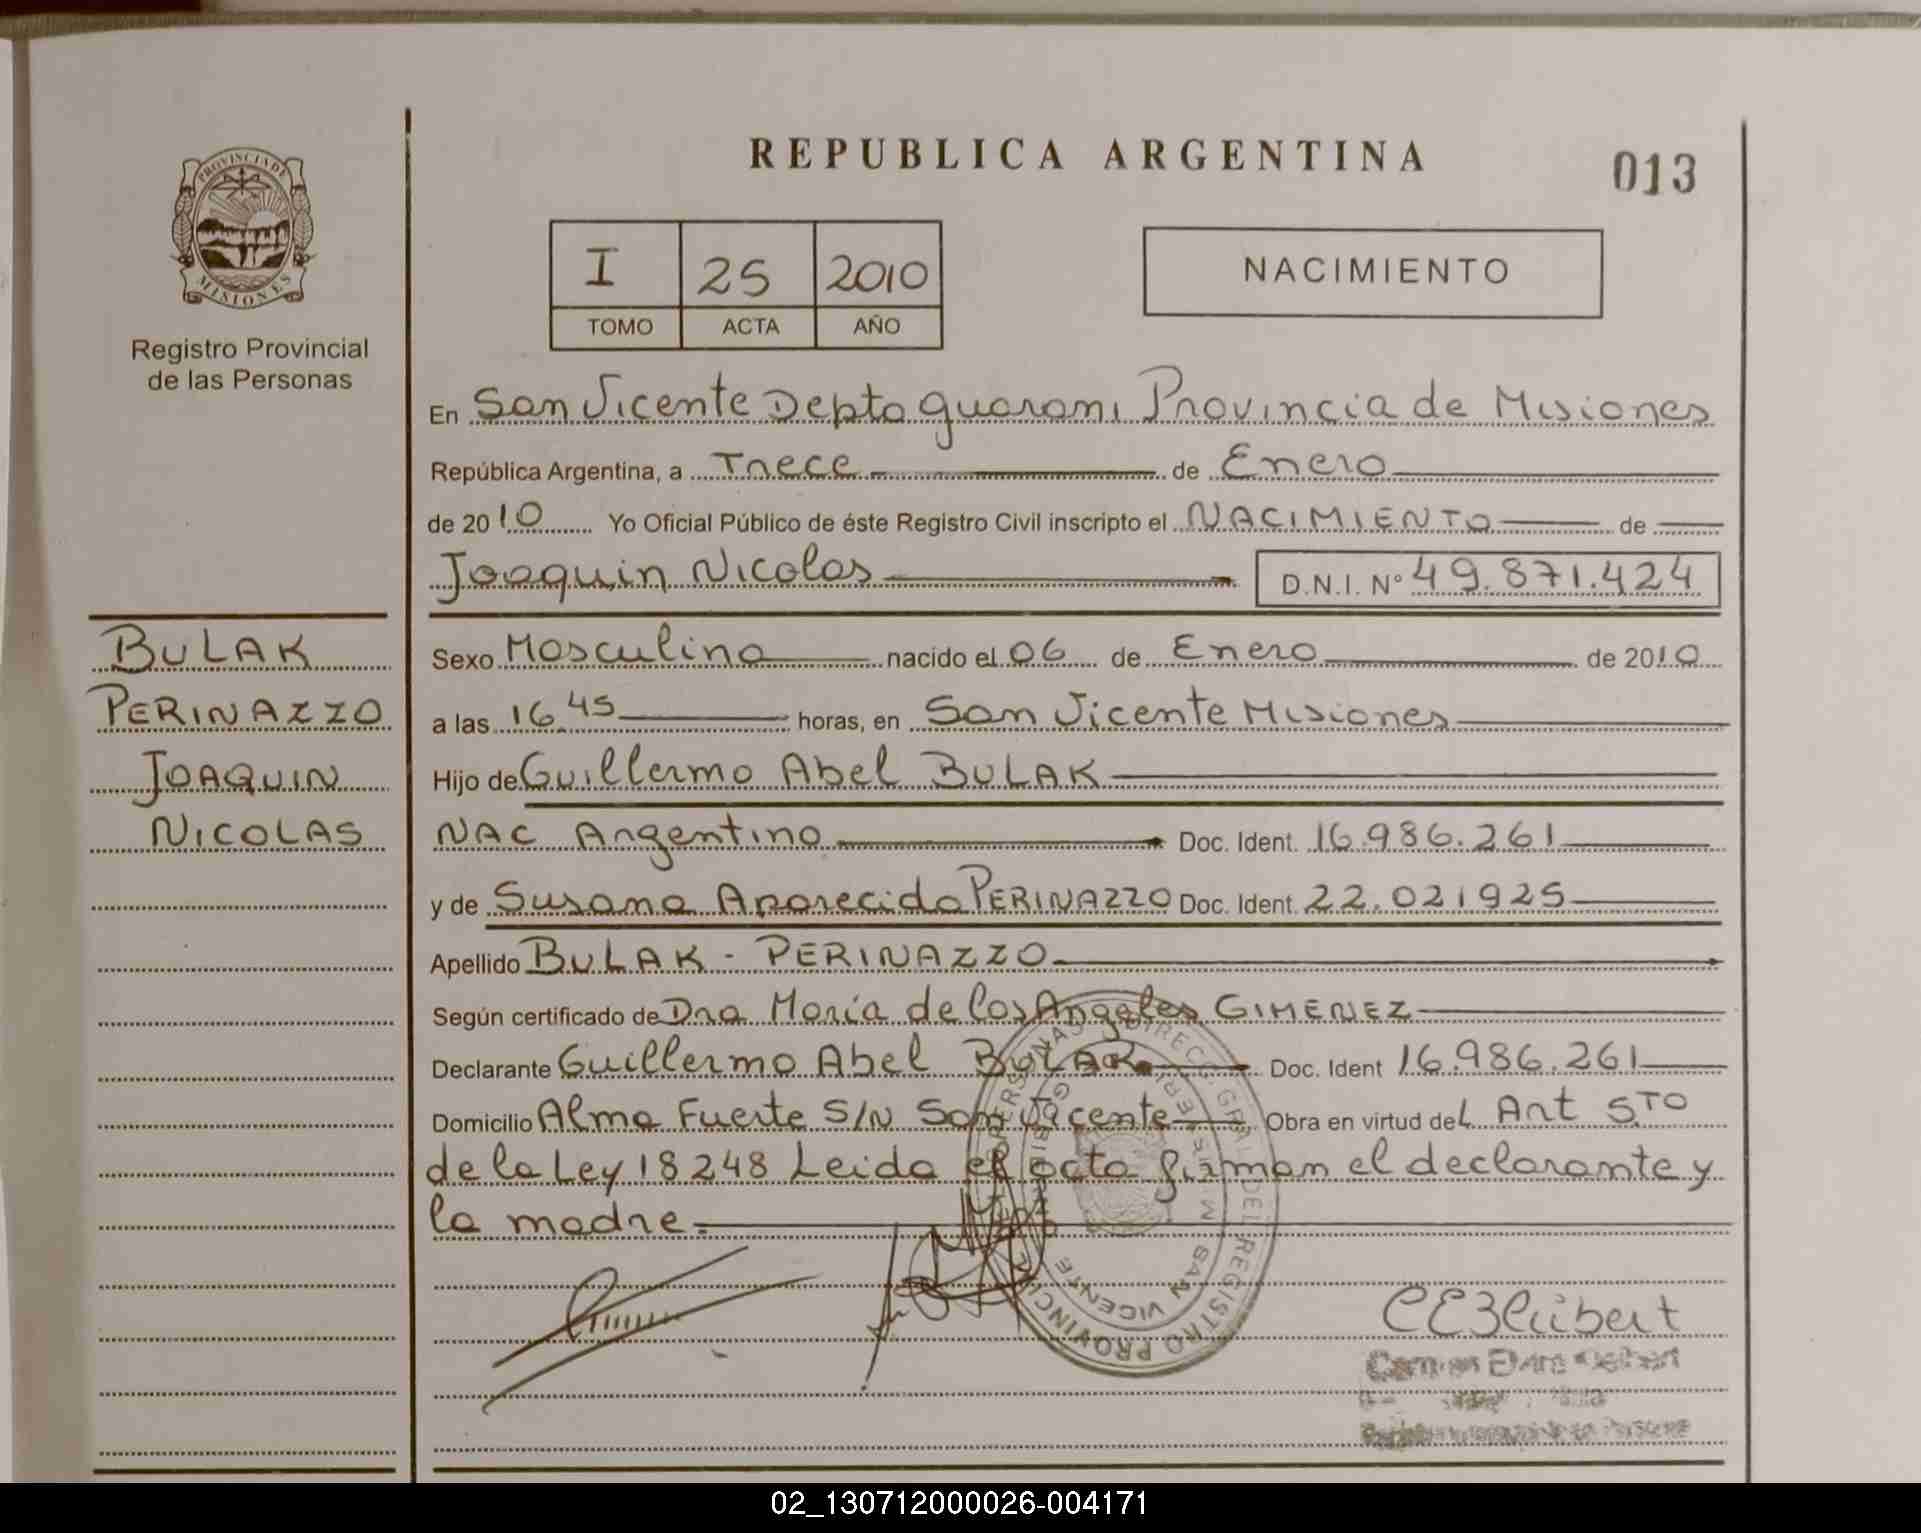 REPUBLICA ARGENTINA
013
PROVINCIA DE
MISIONES
Registro Provincial
de las Personas
I 25 2010
TOMO ACTA AÑO
NACIMIENTO
En San Vicente Depto guarani Provincia de Misiones
República Argentina, a Trece de Enero
de 2010 Yo Oficial Público de éste Registro Civil inscripto el NACIMIENTO de
Joaquin Nicolas D.N.I. Nº 49.871.424
BULAK
PERINAZZO
JOAQUIN
NICOLAS
Sexo Masculino nacido el 06 de Enero de 2010
a las 16 45 horas, en San Vicente Misiones
Hijo de Guillermo Abel BULAK
NAC Argentino Doc. Ident. 16.986.261
y de Susana Aparecida PERINAZZO Doc. Ident. 22.021925
Apellido BULAK - PERINAZZO
Según certificado de Dra Maria de los Angeles GIMENEZ
Declarante Guillermo Abel BULAK Doc. Ident 16.986.261
Domicilio Alma Fuerte S/N San Vicente Obra en virtud del Art 5TO
de la Ley 18248 Leida el acta firman el declarante y
la madre.
SAN VICENTE
02_130712000026-004171